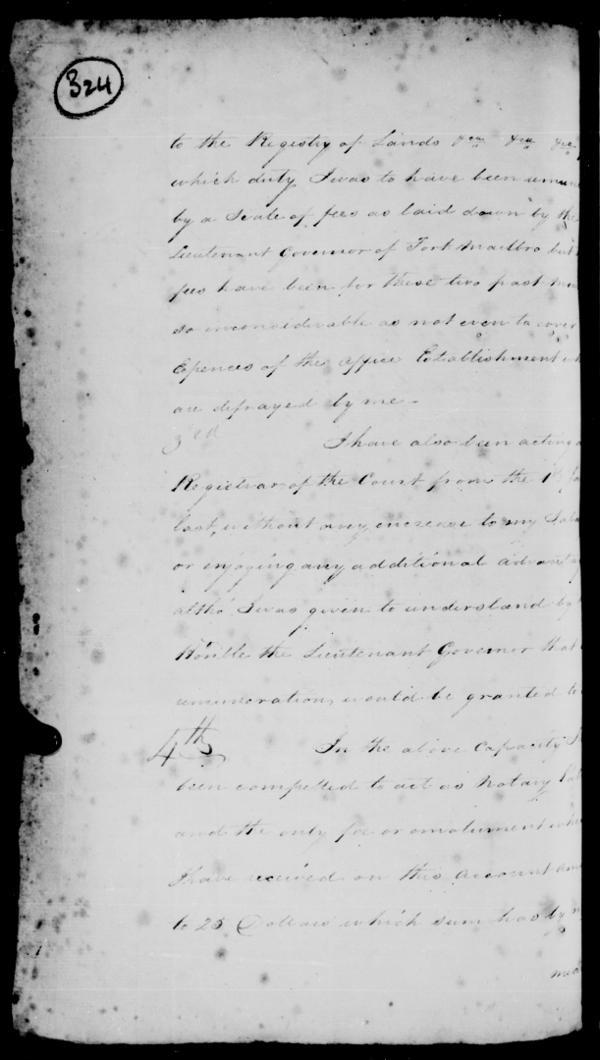 324
to the Registry of Lands &ca &ca &ca
which duty I was to have been
by a Scale of fees as laid down by the
Lieutenant Governor of Fort Marlbro but
fees have been for these two past
so inconsiderable as not even to cover
Expences of the Office Establishment
are defrayed by me -
3rd I have also been acting
Registrar of the Court from the 1st
last, without any encrease to my
or enjoying any additional
altho' I was given to understand by
Honble the Lieutenant Governor that
would be granted to
4th In the above Capacity I
been compelled to act as Notary
and the only fee or emolument
I have received on this account
to 25 Dollars which sum has by